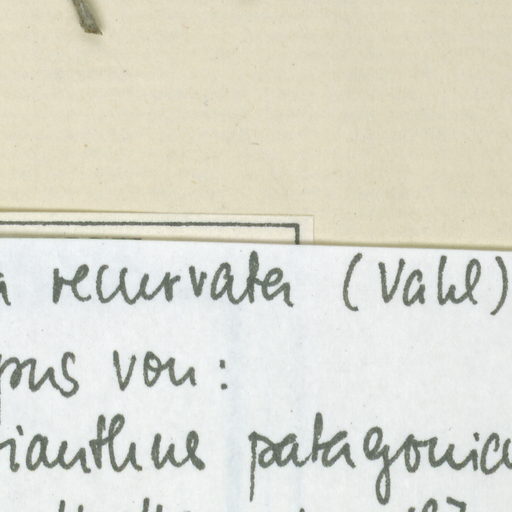 a recurvata (Vahl)
pus von:
ianthus patagonic